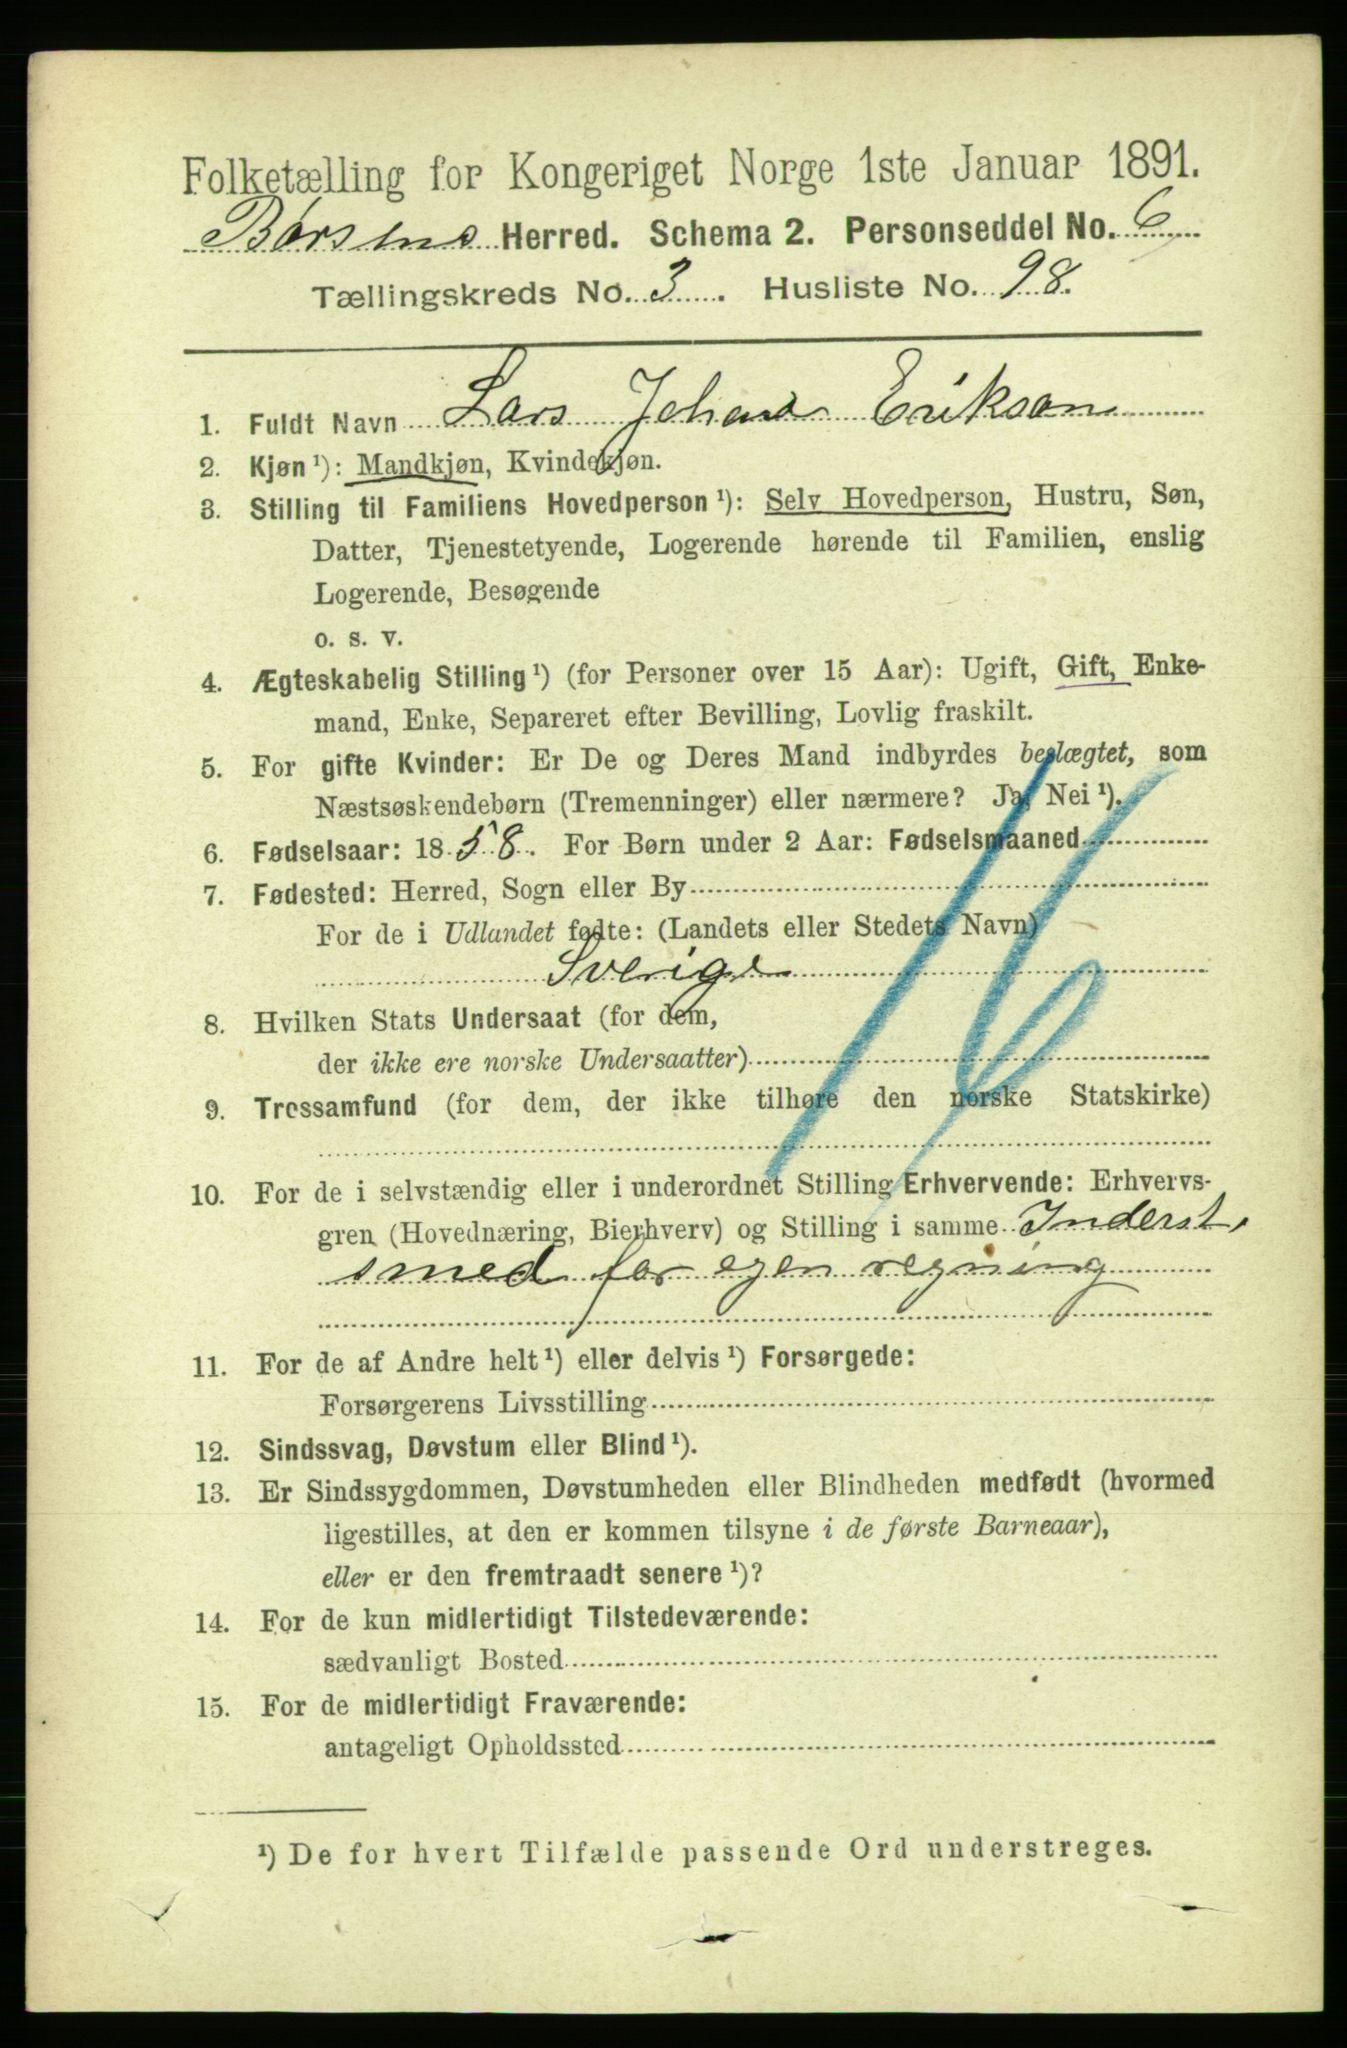 Folketælling for Kongeriget Norge 1ste Januar 1891.
Børsens Herred. Schema 2. Personseddel No. 6
Tællingskreds No. 3. Husliste No. 98.
1. Fuldt Navn Lars Johan Erikson
2. Kjøn¹): Mandkjøn, Kvindekjøn.
3. Stilling til Familiens Hovedperson¹): Selv Hovedperson, Hustru, Søn,
Datter, Tjenestetyende, Logerende hørende til Familien, enslig
Logerende, Besøgende
o. s. v.
4. Ægteskabelig Stilling¹) (for Personer over 15 Aar): Ugift, Gift, Enke-
mand, Enke, Separeret efter Bevilling, Lovlig fraskilt.
5. For gifte Kvinder: Er De og Deres Mand indbyrdes beslægtet, som
Næstsøskendebørn (Tremenninger) eller nærmere? Ja, Nei¹).
6. Fødselsaar: 1858. For Børn under 2 Aar: Fødselsmaaned
7. Fødested: Herred, Sogn eller By
For de i Udlandet fødte: (Landets eller Stedets Navn)
Sverige
8. Hvilken Stats Undersaat (for dem,
der ikke ere norske Undersaatter)
9. Trossamfund (for dem, der ikke tilhøre den norske Statskirke)
10. For de i selvstændig eller i underordnet Stilling Erhvervende: Erhvervs-
gren (Hovednæring, Bierhverv) og Stilling i samme Inderst,
smed for egen regning
11. For de af Andre helt¹) eller delvis¹) Forsørgede:
Forsørgerens Livsstilling
12. Sindssvag, Døvstum eller Blind¹).
13. Er Sindssygdommen, Døvstumheden eller Blindheden medfødt (hvormed
ligestilles, at den er kommen tilsyne i de første Barneaar),
eller er den fremtraadt senere¹)?
14. For de kun midlertidigt Tilstedeværende:
sædvanligt Bosted
15. For de midlertidigt Fraværende:
antageligt Opholdssted
¹) De for hvert Tilfælde passende Ord understreges.